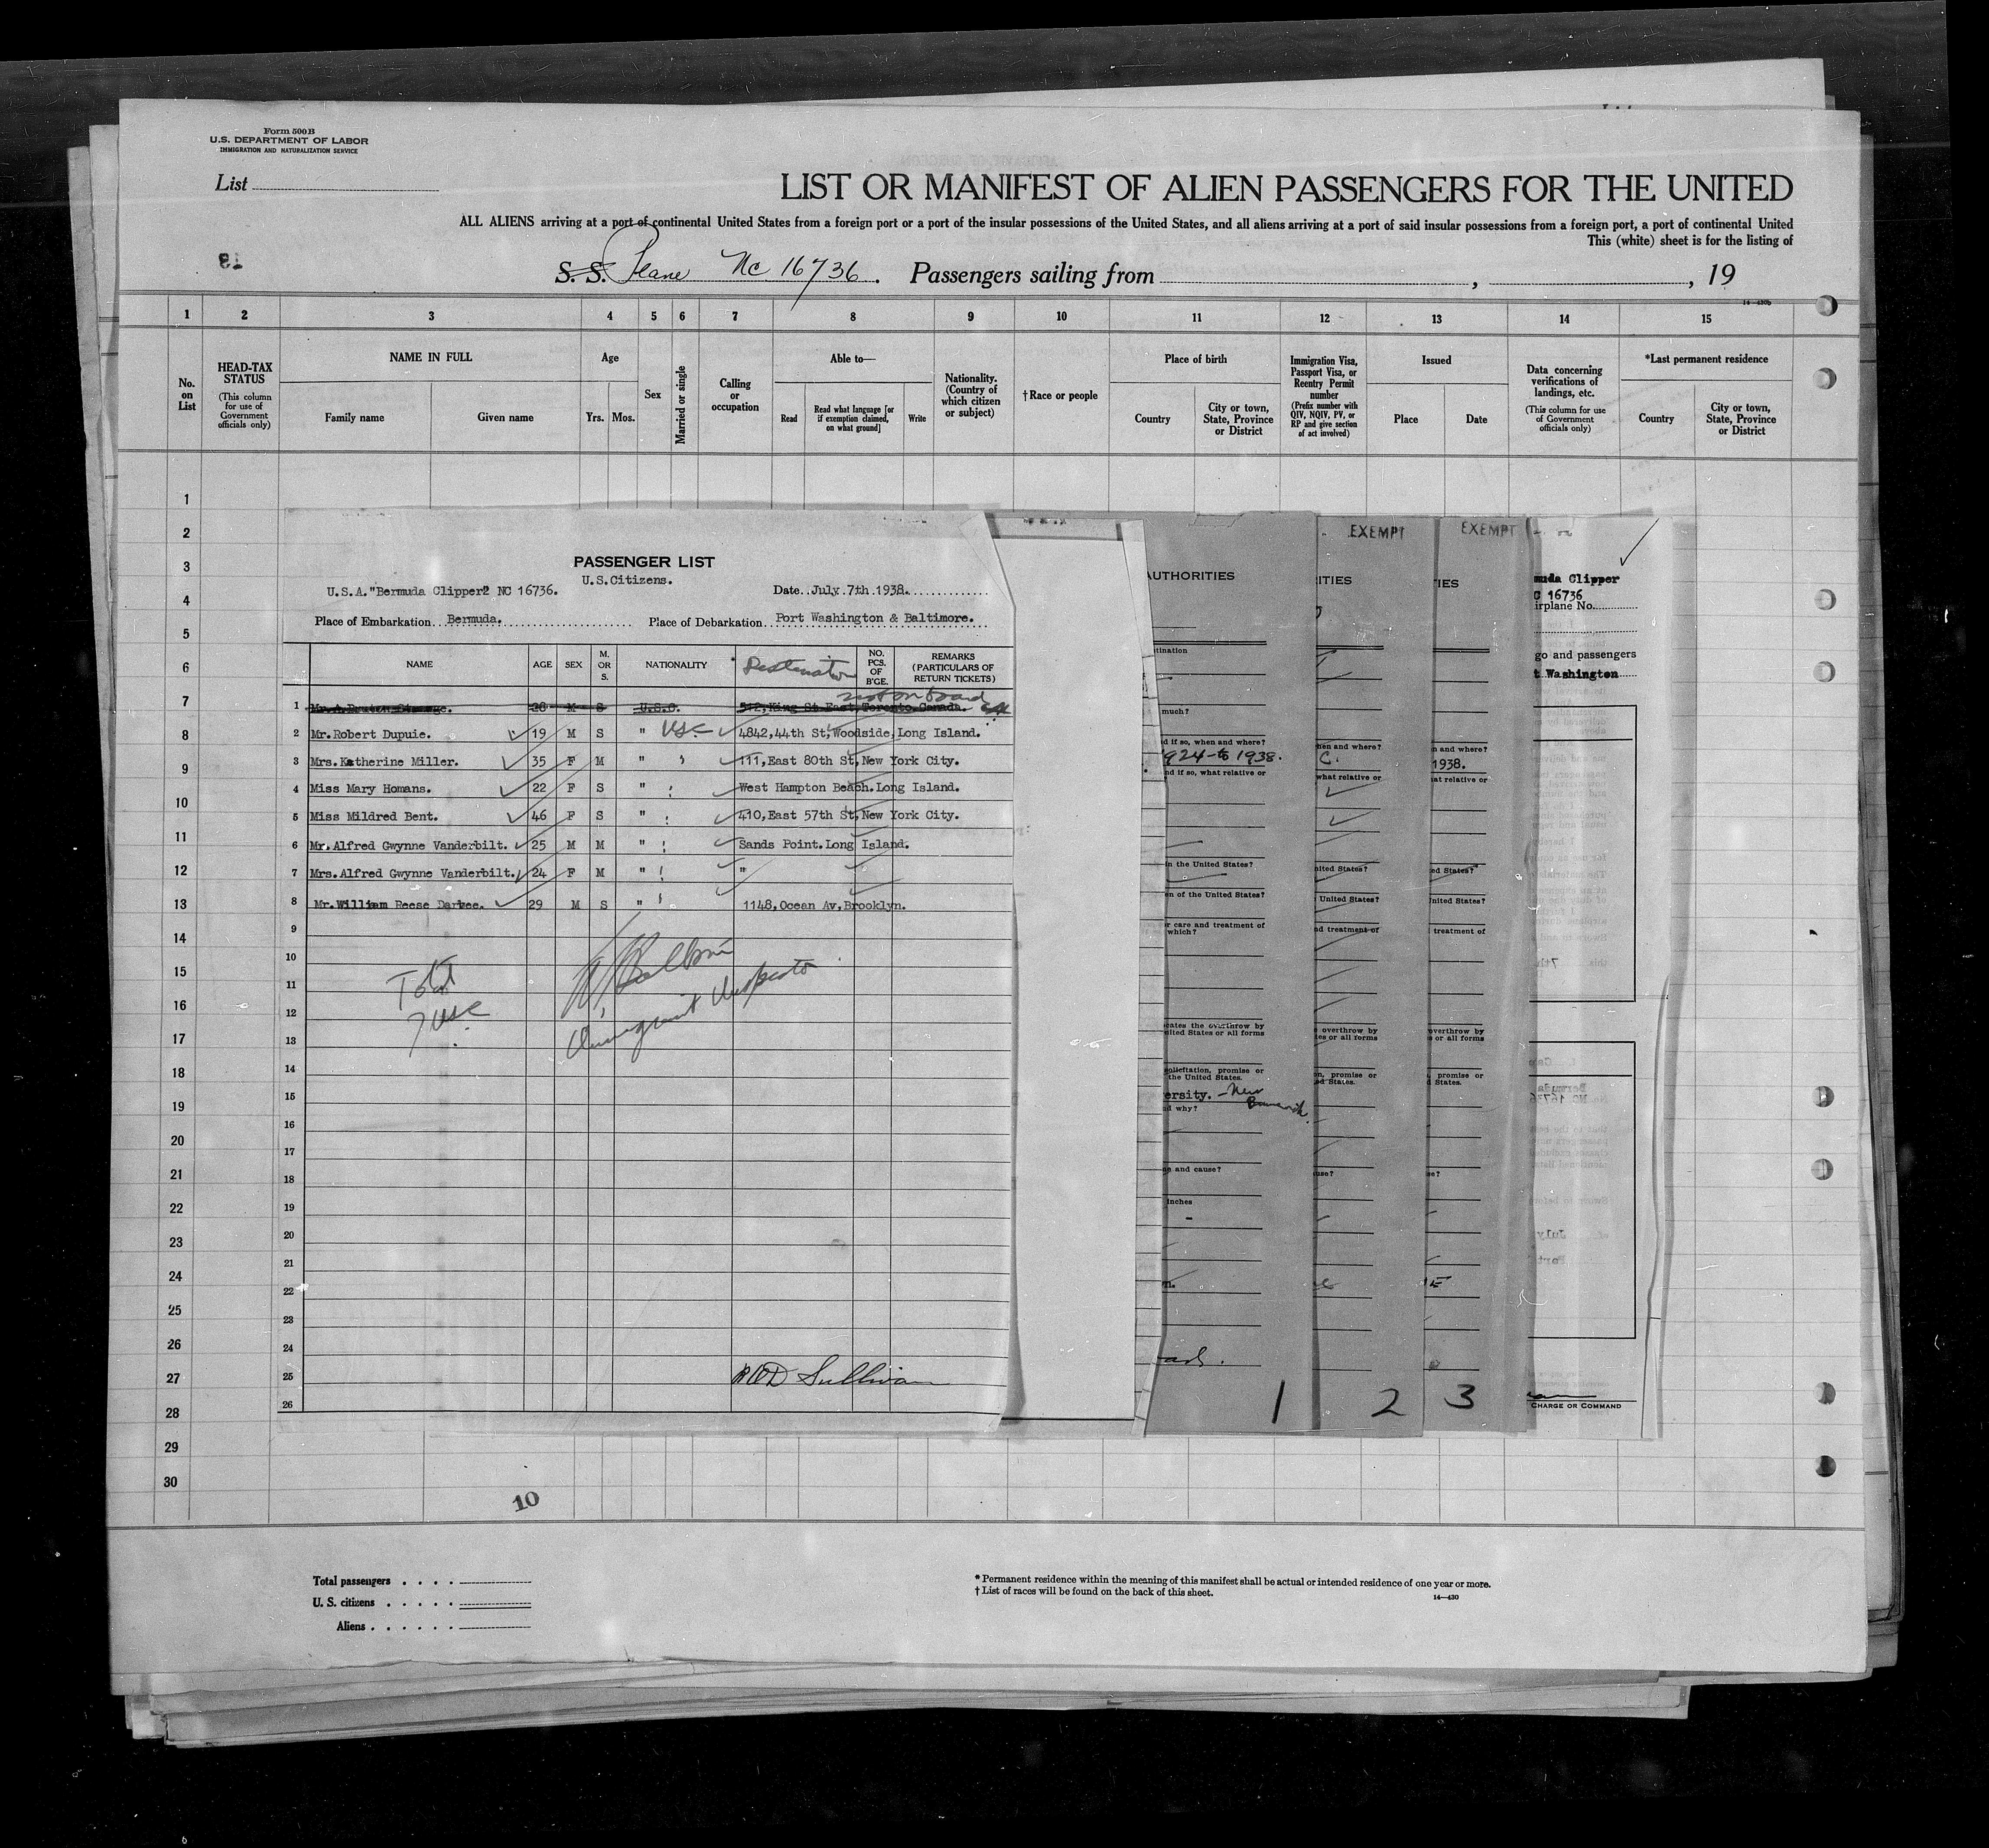 Form 500B
U.S. DEPARTMENT OF LABOR
IMMIGRATION AND NATURALIZATION SERVICE
List
LIST OR MANIFEST OF ALIEN PASSENGERS FOR THE UNITED
ALL ALIENS arriving at a port of continental United States from a foreign port or a port of the insular possessions of the United States, and all aliens arriving at a port of said insular possessions from a foreign port, a port of continental United
This (white) sheet is for the listing of
S. S. Plane NC 16736. Passengers sailing from , , 19
1 2 3 4 5 6 7 8 9 10 11 12 13 14 15
No. on List
HEAD-TAX STATUS
(This column for use of Government officials only)
NAME IN FULL
Family name Given name
Age
Yrs. Mos.
Sex
Married or single
Calling or occupation
Able to—
Read
Read what language [or if exemption claimed, on what ground]
Write
Nationality. (Country of which citizen or subject)
†Race or people
Place of birth
Country
City or town, State, Province or District
Immigration Visa, Passport Visa, or Reentry Permit number
(Prefix number with QIV, NQIV, PV, or RP and give section of act involved)
Issued
Place Date
Data concerning verifications of landings, etc.
(This column for use of Government officials only)
*Last permanent residence
Country
City or town, State, Province or District
1
2
3
4
5
6
7
8
9
10
11
12
13
14
15
16
17
18
19
20
21
22
23
24
25
26
27
28
29
30
PASSENGER LIST
U.S.Citizens.
U.S.A."Bermuda Clipper2 NC 16736. Date..July.7th.1938.
Place of Embarkation..Bermuda. Place of Debarkation..Port Washington & Baltimore.
NAME AGE SEX M. OR S. NATIONALITY Destination NO. PCS. OF B'GE. REMARKS (PARTICULARS OF RETURN TICKETS)
not on board
1 28 M S U.S.C. 512, King St East, Toronto.Canada.
2 Mr.Robert Dupuie. 19 M S " USC 4842,44th St,Woodside,Long Island.
3 Mrs.Katherine Miller. 35 F M " 111,East 80th St,New York City.
4 Miss Mary Homans. 22 F S " West Hampton Beach.Long Island.
5 Miss Mildred Bent. 46 F S " 410,East 57th St,New York City.
6 Mr.Alfred Gwynne Vanderbilt. 25 M M " Sands Point.Long Island.
7 Mrs.Alfred Gwynne Vanderbilt. 24 F M " "
8 Mr.William Reese 29 M S " 1148,Ocean Av,Brooklyn.
9
10
11
12
13
14
15
16
17
18
19
20
21
22
23
24
25
26
Total
7 USC
Immigrant Inspector
Sullivan
AUTHORITIES
much?
d if so, when and where?
1924-to 1938.
nd if so, what relative or
in the United States?
en of the United States?
r care and treatment of
which?
cates the overthrow by
ited States or all forms
the United States.
ersity. - New
d why?
e and cause?
inches
1
EXEMPT
ITIES
hen and where?
what relative or
nited States?
United States?
nd treatment of
overthrow by
es or all forms
n, promise or
ed States.
use?
2
EXEMPT
IES
n and where?
1938.
at relative or
ed States?
United States?
treatment of
overthrow by
s or all forms
, promise or
d States.
se?
3
muda Clipper
C 16736
irplane No.
go and passengers
t Washington
CHARGE OR COMMAND
10
Total passengers . . . .
U. S. citizens . . . . .
Aliens . . . . . .
* Permanent residence within the meaning of this manifest shall be actual or intended residence of one year or more.
† List of races will be found on the back of this sheet.
14—430